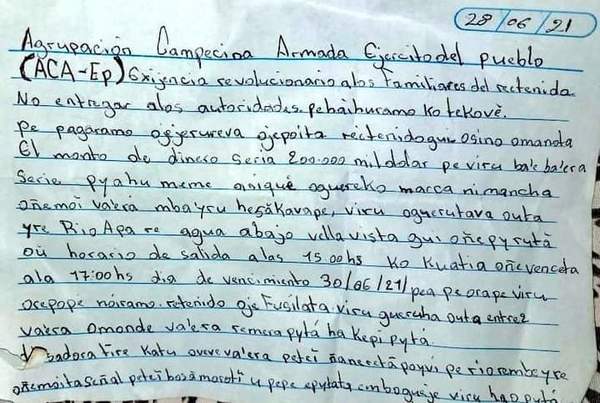 28/06/21
Agrupación Campecina Armada Ejercito del pueblo
(ACA-Ep) Exijencia revolucionario alos Familiares del rectenida
No entregar alas autoridades. pebaihuramo ko tekovê.
pe pagáramo ojejerureva ojepoita rectenidogui osino omanota
El monto de dinero seria 200.000 mil dolar pe viru bale balera
Serie pyahu meme aniquê oguereko marca ni mancha
oñemoi va'erã mba'yru hesãkavape, viru oguerutava outa
yre Rio Apa re agua abajo vella vista gui oñepyrutã
oú horario de salida alas 15:00 hs ko Kuatia oñevenceta
ala 17:00 hs dia de vencimiento 30/06/21 pea pe orape viru
orepope noiramo. retenido oje Fusilata. viru gueruha outa entre 2
va'era omonde va'era remera pytã ha Kepi pytã.
Fire katu oveve va'era peteî payvi pe rio rembeyre
Señal peteî morotî u pepe epytata emboguejê viru hao pytu